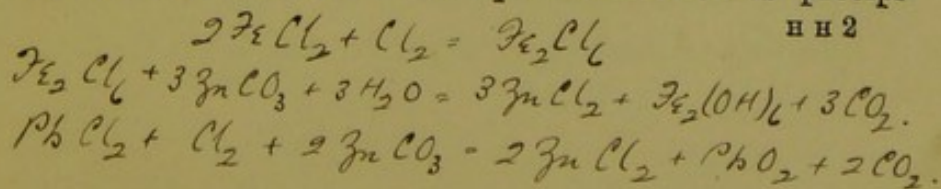 нн2
2FeCl₂ + Cl₂ = Fe₂Cl₆
Fe₂Cl₆ + 3ZnCO₃ + 3H₂O = 3ZnCl₂ + Fe₂(OH)₆ + 3CO₂.
PbCl₂ + Cl₂ + 2ZnCO₃ = 2ZnCl₂ + PbO₂ + 2CO₂.